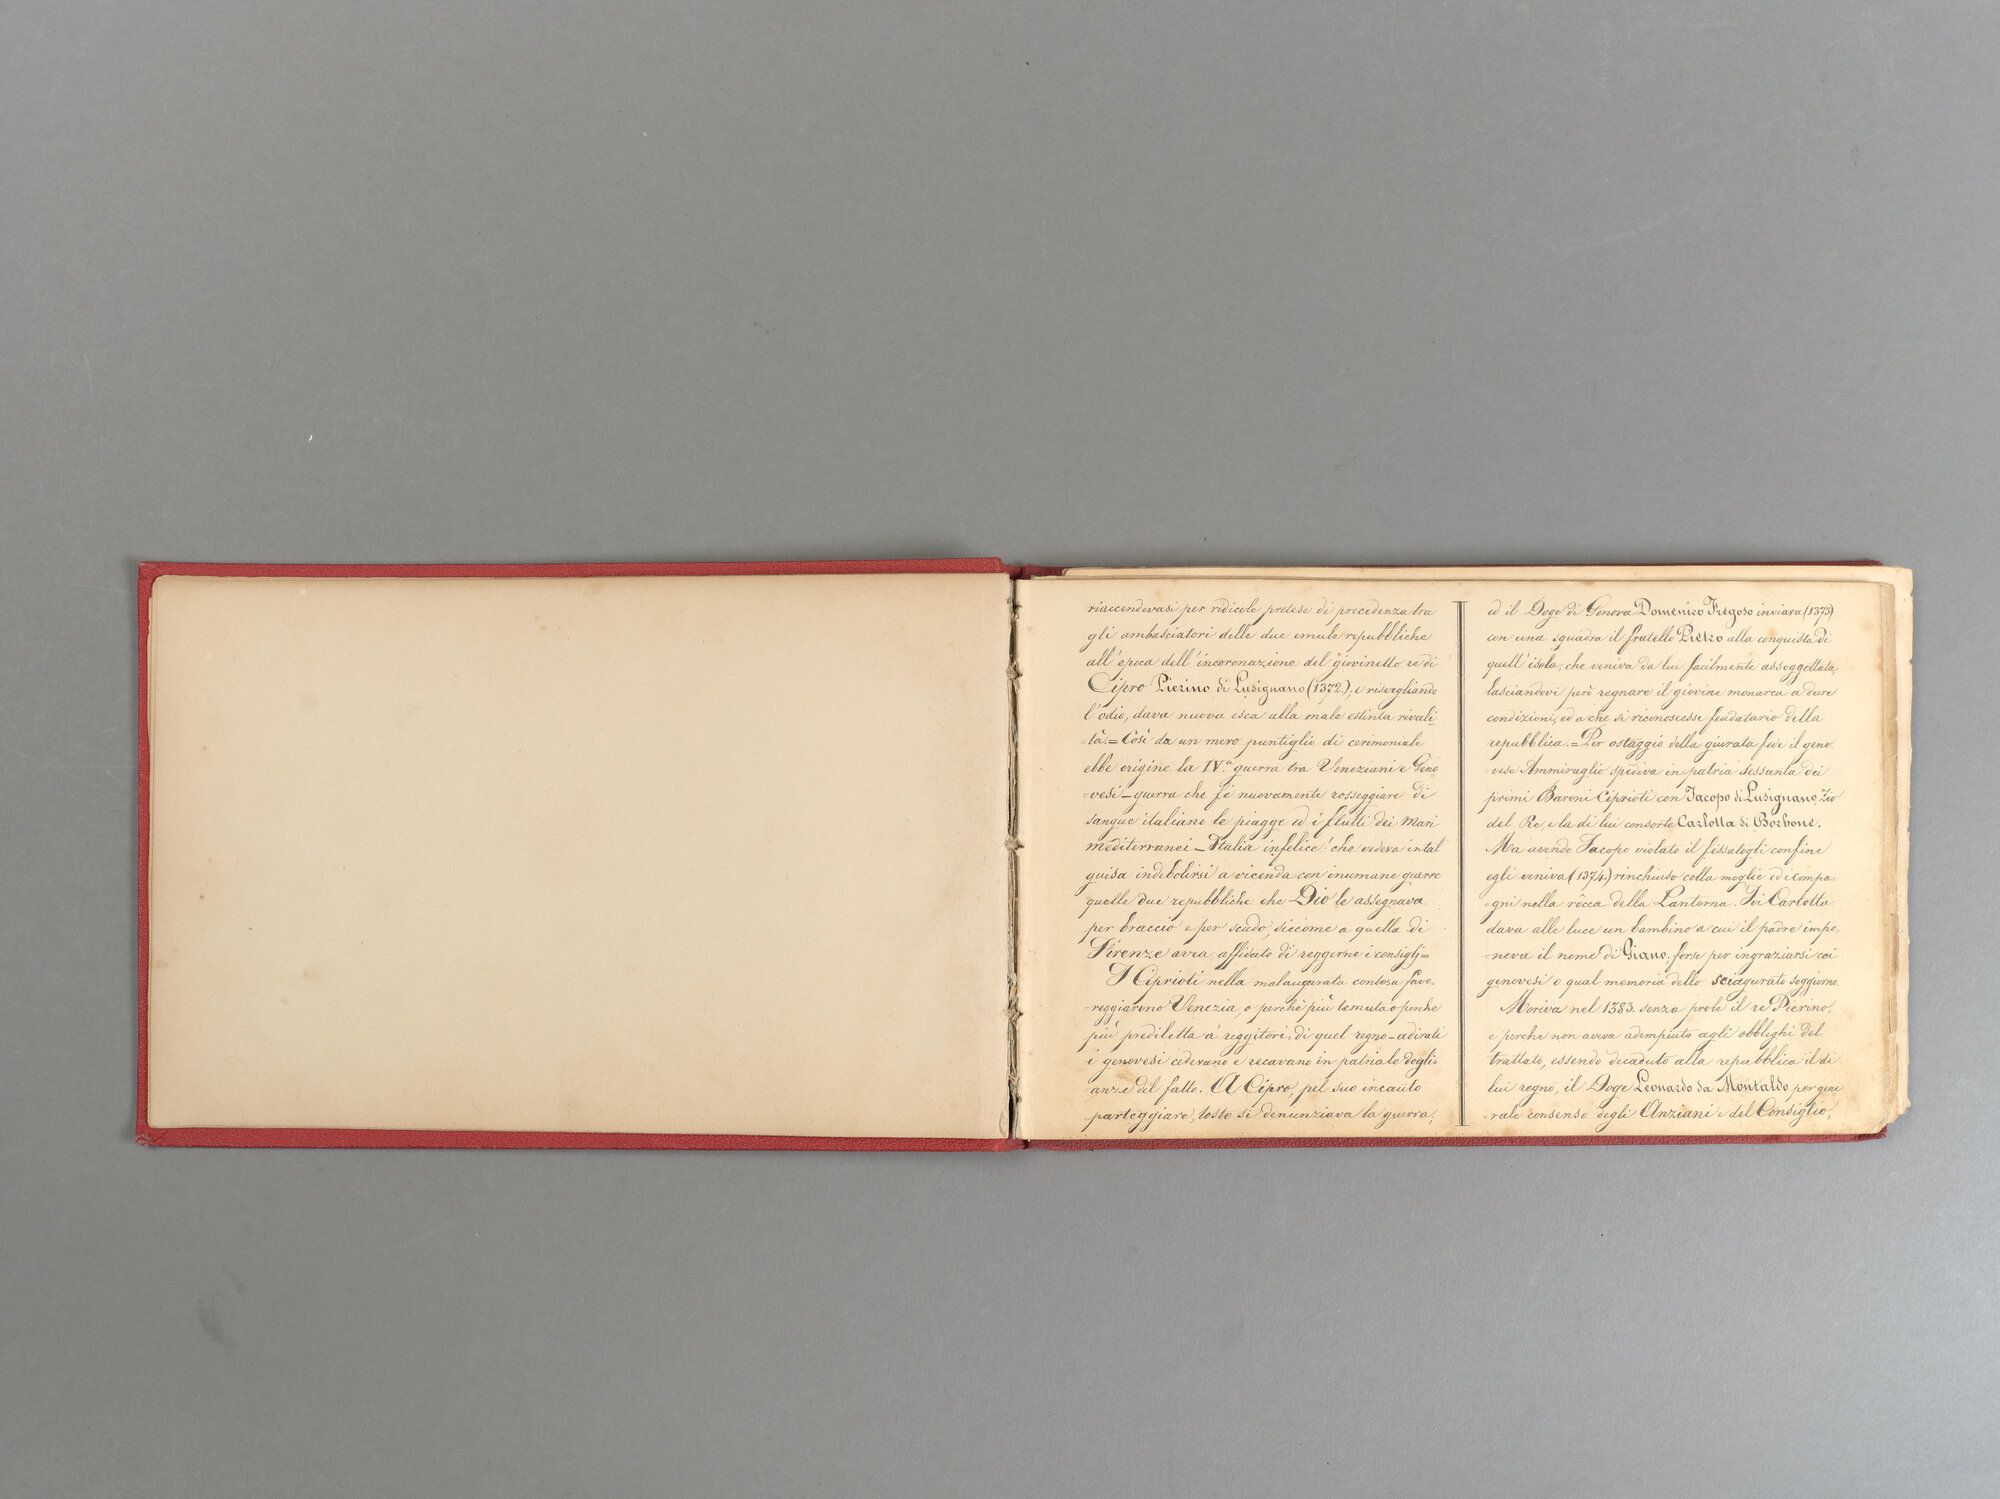 riaccendevasi per ridicole pretese di precedenza tra
gli ambasciatori delle due emule repubbliche
all'epoca dell'incoronazione del giovinetto re di
Cipro Pierino di Lusignano (1372); e risvegliando
l'odio, dava nuova esca alla male estinta rivali-
-tà.= Così da un mero puntiglio di cerimoniale
ebbe origine la IV.a guerra tra Veneziani e Geno-
-vesi _ guerra che fe' nuovamente rosseggiare di
sangue italiano le piagge ed i flutti dei Mari
mediterranei _ Italia infelice! che vedeva in tal
guisa indebolirsi a vicenda con inumane guerre
quelle due repubbliche che Dio le assegnava
per braccio e per scudo siccome a quella di
Firenze avea affidato di reggerne i consigli=
I Ciprioti nella malaugurata contesa favo-
-reggiarono Venezia, o perchè più temuta o perchè
più prediletta a' reggitori di quel regno - adirati
i genovesi cederono e recavano in patria le dogli-
-anze del fatto. A Cipro, pel suo incauto
parteggiare, tosto si denunziava la guerra,
ed il Doge di Genova Domenico Fregoso inviava (1373)
con una squadra il fratello Pietro alla conquista di
quell'isola, che veniva da lui facilmente assoggettata,
lasciandovi però regnare il giovine monarca a dure
condizioni, ed a che si riconoscesse feudatario della
repubblica.= Per ostaggio della giurata fede il geno-
-vese Ammiraglio spediva in patria sessanta dei
primi Baroni Ciprioti con Jacopo di Lusignano, Zio
del Re, e la di lui consorte Carlotta di Borbone.
Ma avendo Jacopo violato il fissatogli confine
egli veniva (1374) rinchiuso colla moglie ed i compa-
-gni nella ròcca della Lanterna. Ivi Carlotta
dava alla luce un bambino a cui il padre impo-
-neva il nome di Giano, forse per ingraziarsi coi
genovesi o qual memoria dello sciagurato soggiorno.
Moriva nel 1383. senza prole il re Pierino,
e perchè non aveva adempiuto agli obblighi del
trattato, essendo decaduto alla repubblica il di
lui regno, il Doge Leonardo da Montaldo per gene
-rale consenso degli Anziani e del Consiglio,